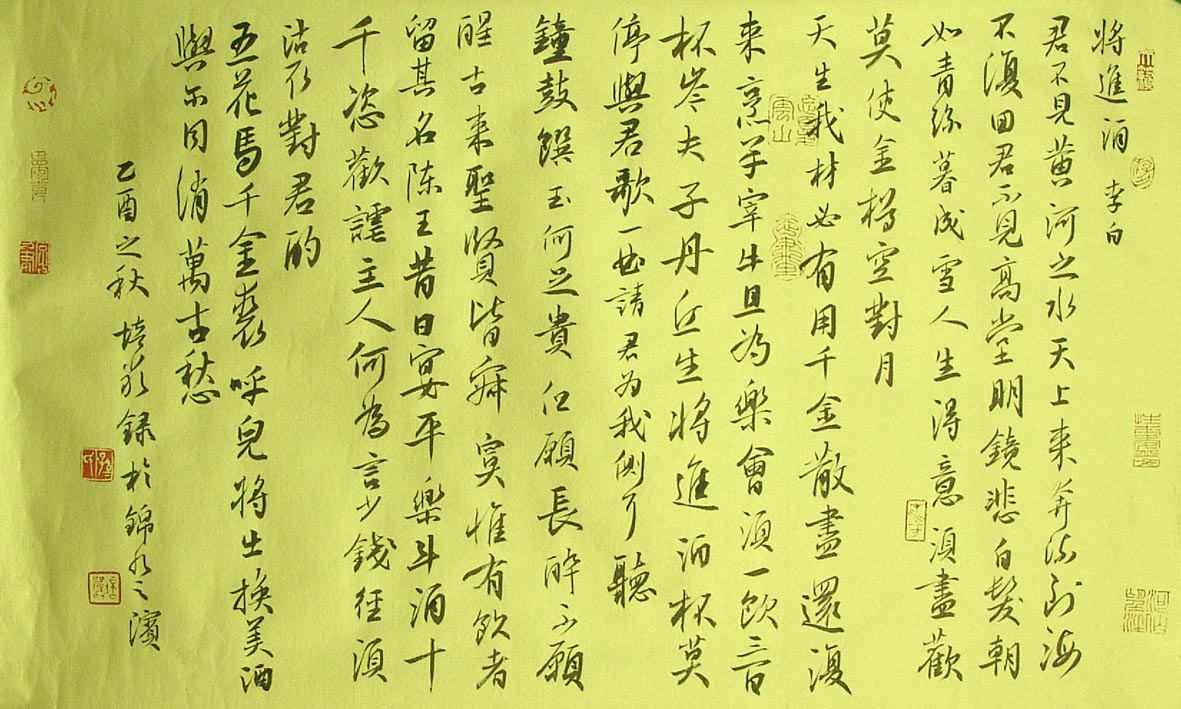 將進酒 李白
君不見黃河之水天上來奔流到海
不復回君不見高堂明鏡悲白髮朝
如青絲暮成雪人生得意須盡歡
莫使金樽空對月
天生我材必有用千金散盡還復
來烹羊宰牛且為樂會須一飲三百
杯岑夫子丹丘生將進酒杯莫
停與君歌一曲請君為我側耳聽
鐘鼓饌玉何足貴但願長醉不願
醒古來聖賢皆寂寞惟有飲者
留其名陳王昔日宴平樂斗酒十
千恣歡謔主人何為言少錢徑須
沽取對君酌
五花馬千金裘呼兒將出換美酒
與爾同消萬古愁
乙酉之秋 錄於錦水之濱